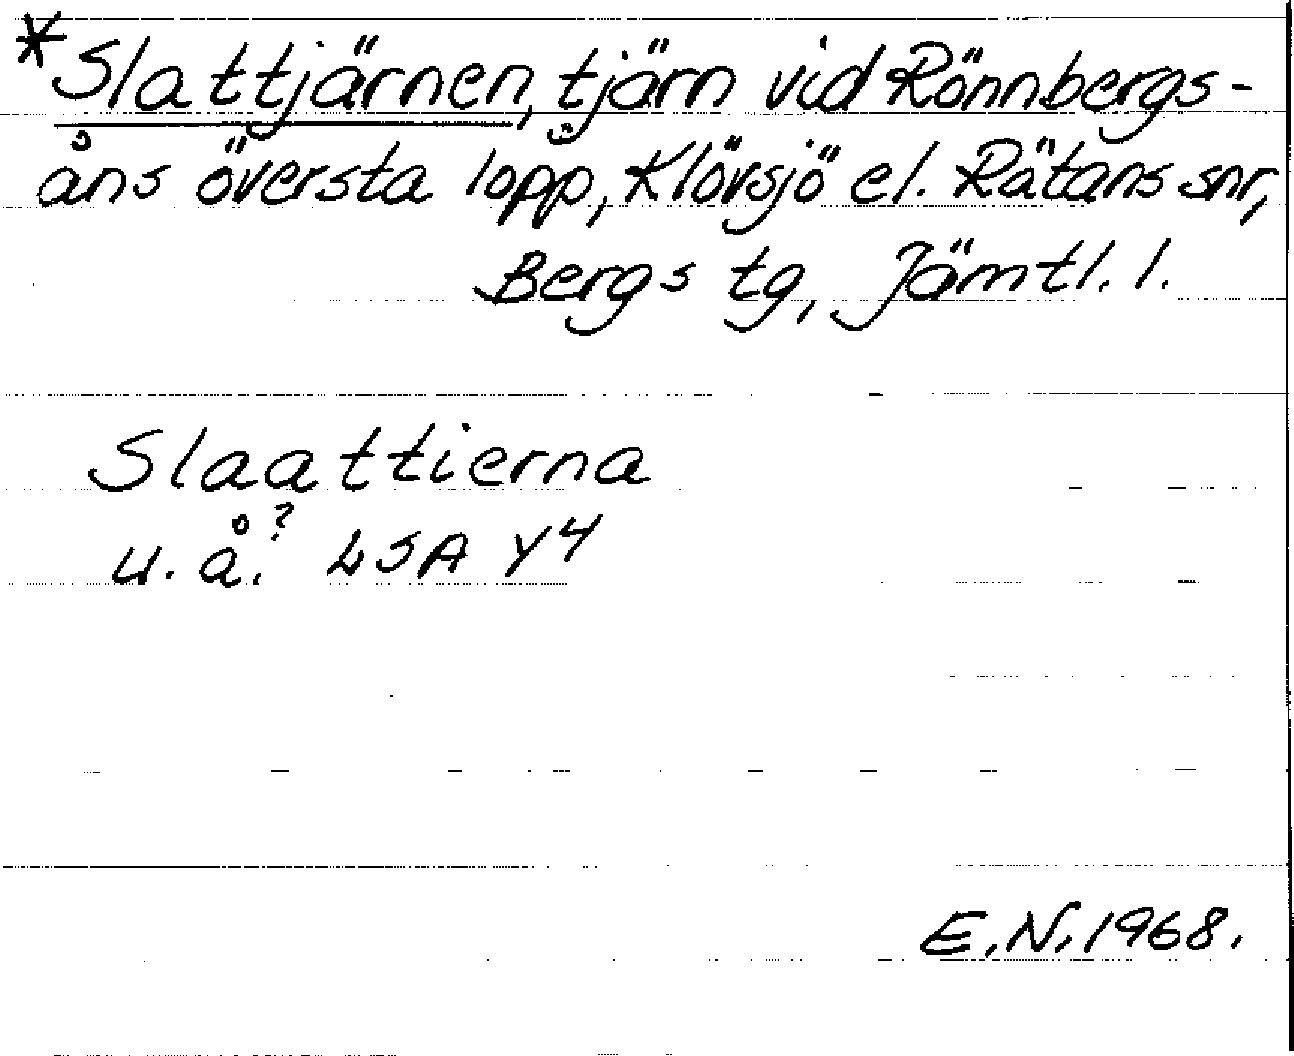 *Slattjärnen, tjärn vid Rönnbergs-
åns översta lopp, Klövsjö el. Rätans snr,
Bergs tg, Jämtl. l.
Slaattierna
u. å.? LSA Y4
E.N. 1968.